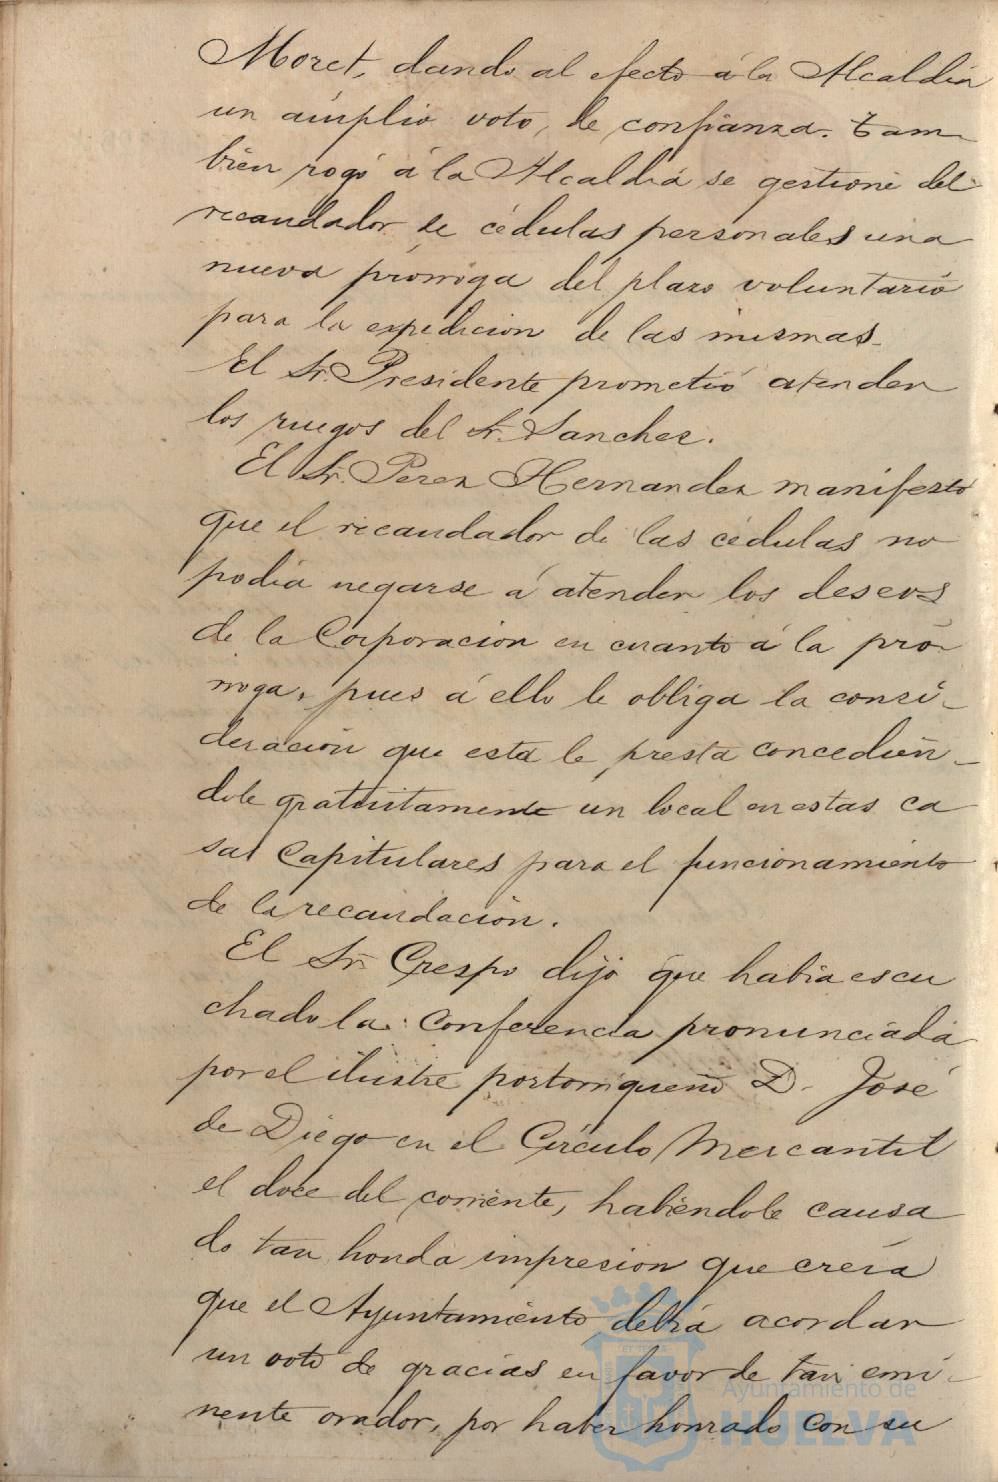 Moret, dando al efecto á la Alcaldia
un ámplio voto, de confianza. Tam
bien rogó á la Alcaldia se gestione del
recaudador de cédulas personales una
nueva prórroga del plazo voluntario
para la expedicion de las mismas.
El Sr. Presidente prometió atender
los ruegos del Sr. Sanchez.
El Sr. Perez Hernandez manifestó
que el recaudador de las cédulas no
podia negarse á atender los deseos
de la Corporacion en cuanto á la pró-
rroga, pues á ello le obliga la consi-
deración que esta le presta concedién-
dole gratuitamente un local en estas ca
sas Capitulares para el funcionamiento
de la recaudación.
El Sr. Crespo dijo que habia escu
chado la Conferencia pronunciada
por el ilustre portorriqueño D. José
de Diego en el Círculo Mercantil
el doce del corriente, habiéndole causa
do tan honda impresion que creía
que el Ayuntamiento debía acordar
un voto de gracias en favor de tan emi-
nente orador, por haber honrado con su
Ayuntamiento de
HUELVA